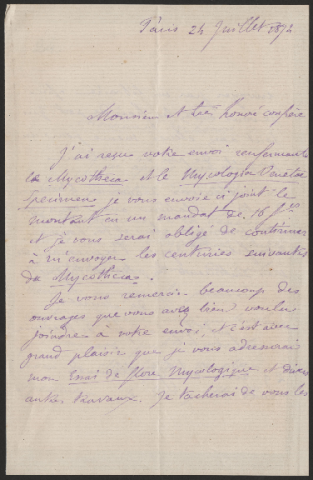 Paris 24 Juillet 1874
Monsieur et très honoré confrère
J'ai reçu votre envoi renfermant
la Mycotheca et le Mycologiæ Venetæ
Specimen, je vous envoie ci joint le
montant en un mandat de 16 fcs
et je vous serai obligé de continuer
à m'envoyer les centuries suivantes
du Mycotheca.
Je vous remercie beaucoup des
ouvrages que vous avez bien voulu
joindre à votre envoi, et c'est avec
grand plaisir que je vous adresserai
mon Essai de flore Mycologique et divers
autres travaux. Je tacherai de vous les